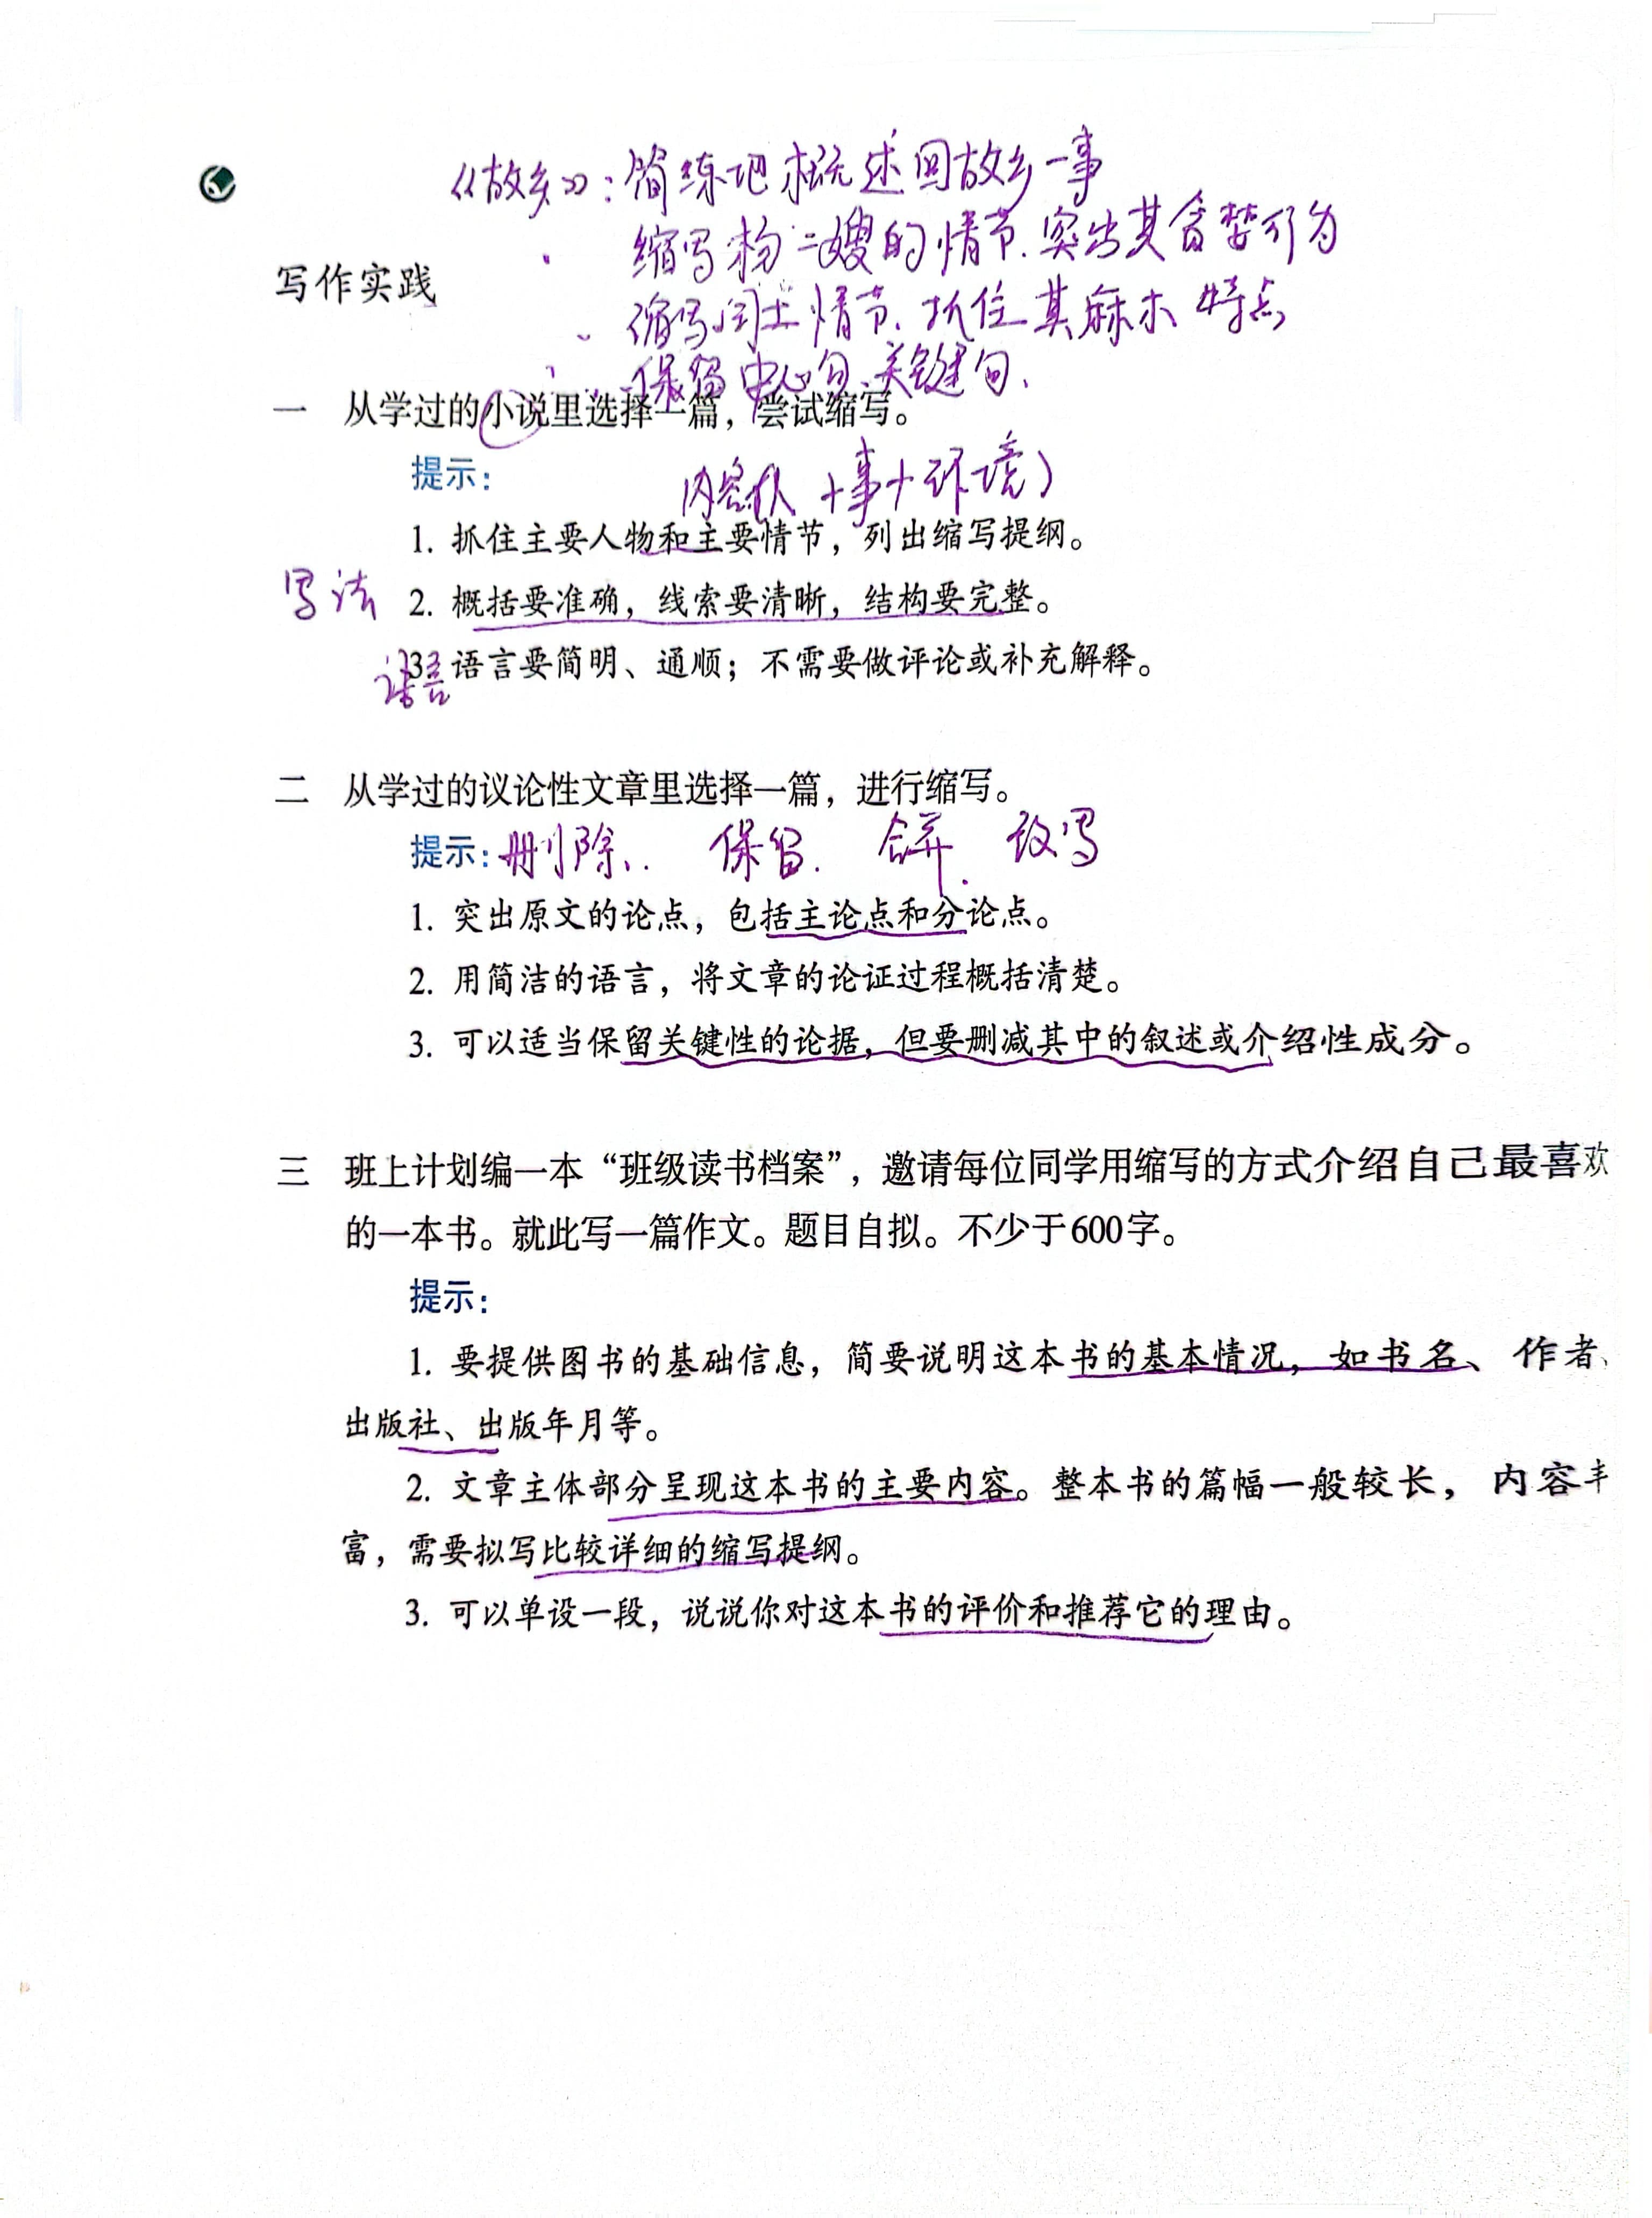 《故乡》：简练地概述回故乡一事
缩写杨二嫂的情节.突出其贪婪行为
写作实践
缩写闰土情节.抓住其麻木特点
保留中心句、关键句.
一 从学过的小说里选择一篇，尝试缩写。
提示：
内容(人+事+环境)
1. 抓住主要人物和主要情节，列出缩写提纲。
写法 2. 概括要准确，线索要清晰，结构要完整。
语言 3. 语言要简明、通顺；不需要做评论或补充解释。
二 从学过的议论性文章里选择一篇，进行缩写。
提示：删除、. 保留. 合并. 改写
1. 突出原文的论点，包括主论点和分论点。
2. 用简洁的语言，将文章的论证过程概括清楚。
3. 可以适当保留关键性的论据，但要删减其中的叙述或介绍性成分。
三 班上计划编一本“班级读书档案”，邀请每位同学用缩写的方式介绍自己最喜欢
的一本书。就此写一篇作文。题目自拟。不少于600字。
提示：
1. 要提供图书的基础信息，简要说明这本书的基本情况，如书名、作者、
出版社、出版年月等。
2. 文章主体部分呈现这本书的主要内容。整本书的篇幅一般较长，内容丰
富，需要拟写比较详细的缩写提纲。
3. 可以单设一段，说说你对这本书的评价和推荐它的理由。